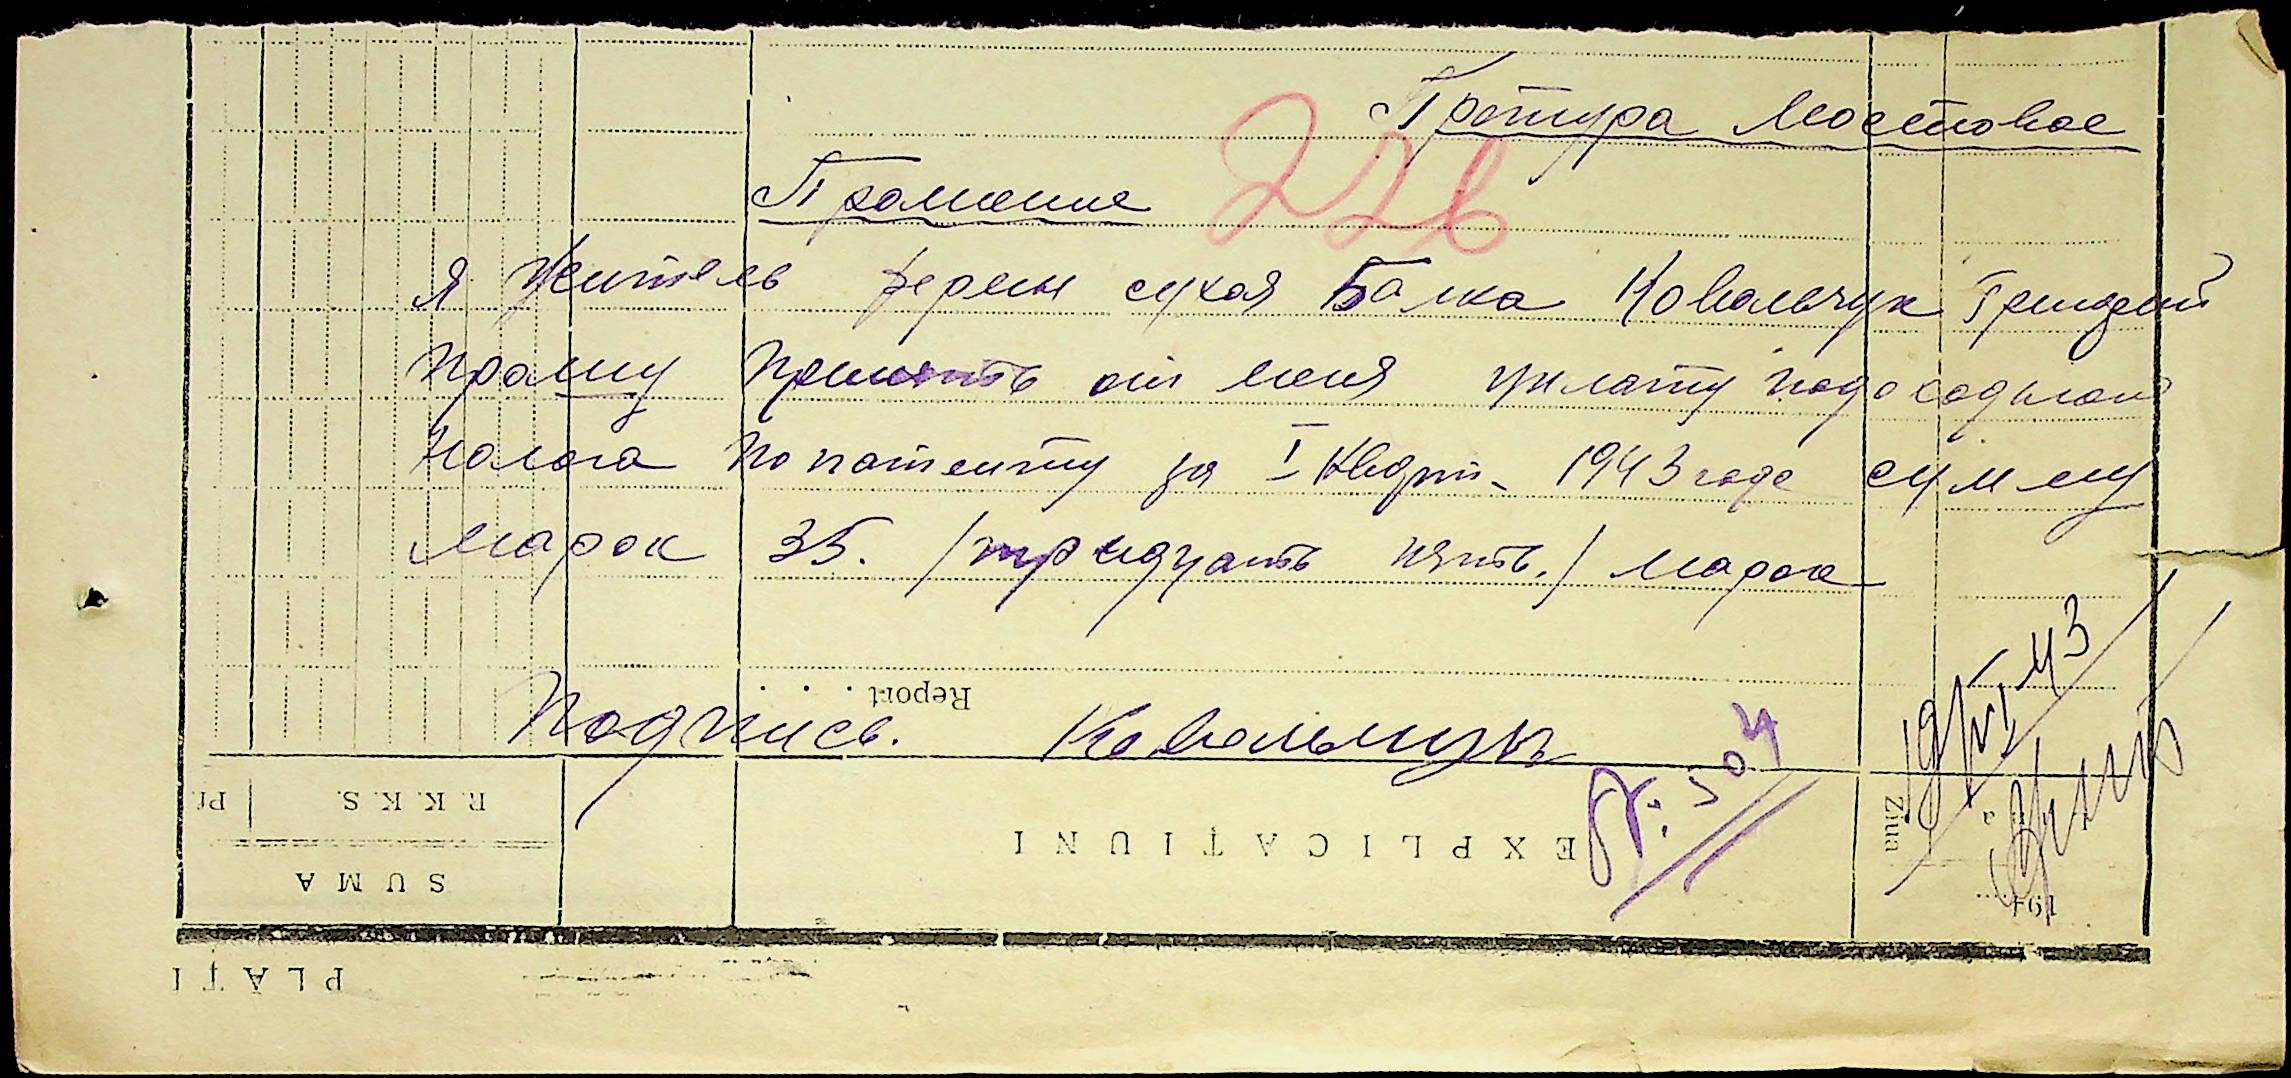 Претура Мостовое
226
Прошение
Я житель фермы сухая Балка Ковальчук Григорий
прошу принять от меня уплату подоходного
налога по патенту за I кварт. 1943 года сумму
марок 35. /тридцать пять./ марок
Report . . .
Подпись. Ковальчук
19/VI 43
№: 504
Pf. R. K. K. S.
EXPLICAŢIUNI
Ziua
SUMA
194
PLĂŢI